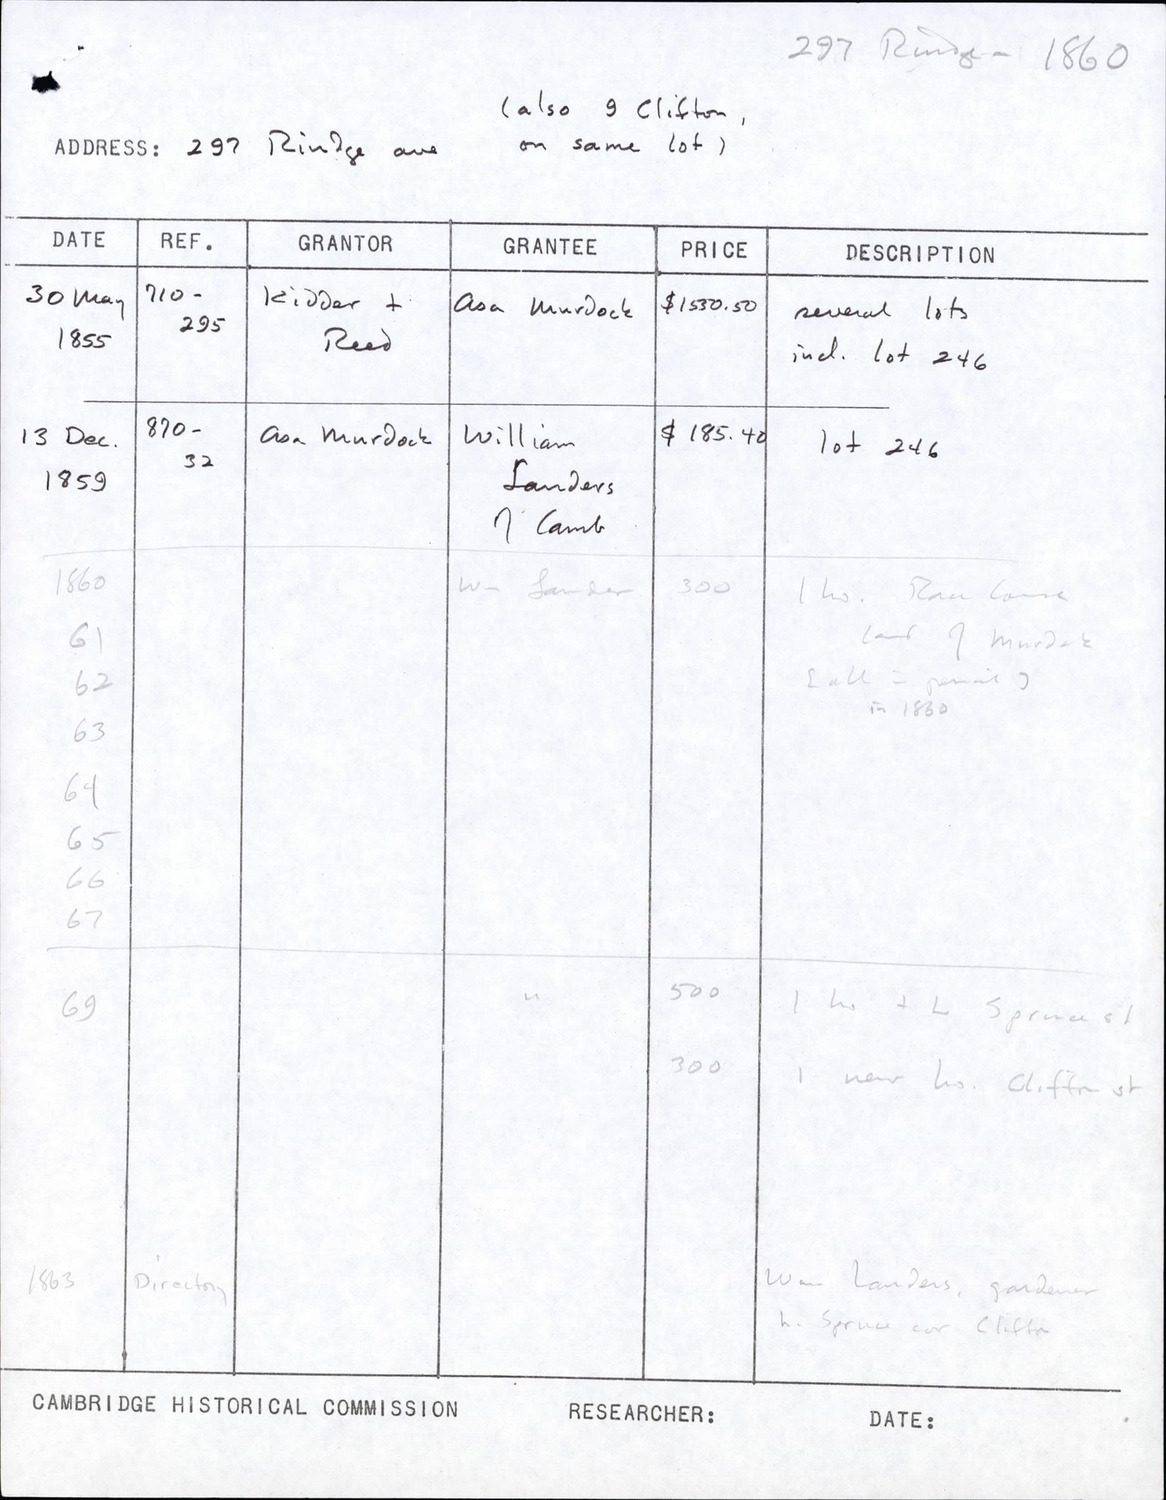 297 Rindge - 1860
(also 9 Clifton,
ADDRESS: 297 Rindge ave on same lot)
DATE REF. GRANTOR GRANTEE PRICE DESCRIPTION
30 May 710- Kidder + Asa Murdock $1530.50 several lots
1855 295 Reed incl. lot 246
13 Dec. 870- Asa Murdock William $185.40 lot 246
1859 32 Landers
of Camb
1860 Wm Lander 300 1 ho. Race Course
61 land of Murdock
62 [all in pencil]
in 1860
63
64
65
66
67
69 " 500 1 ho + L Spruce st
300 1 new ho. Clifton st
1863 Directory Wm Landers, gardener
h. Spruce cor Clifton
CAMBRIDGE HISTORICAL COMMISSION RESEARCHER: DATE: